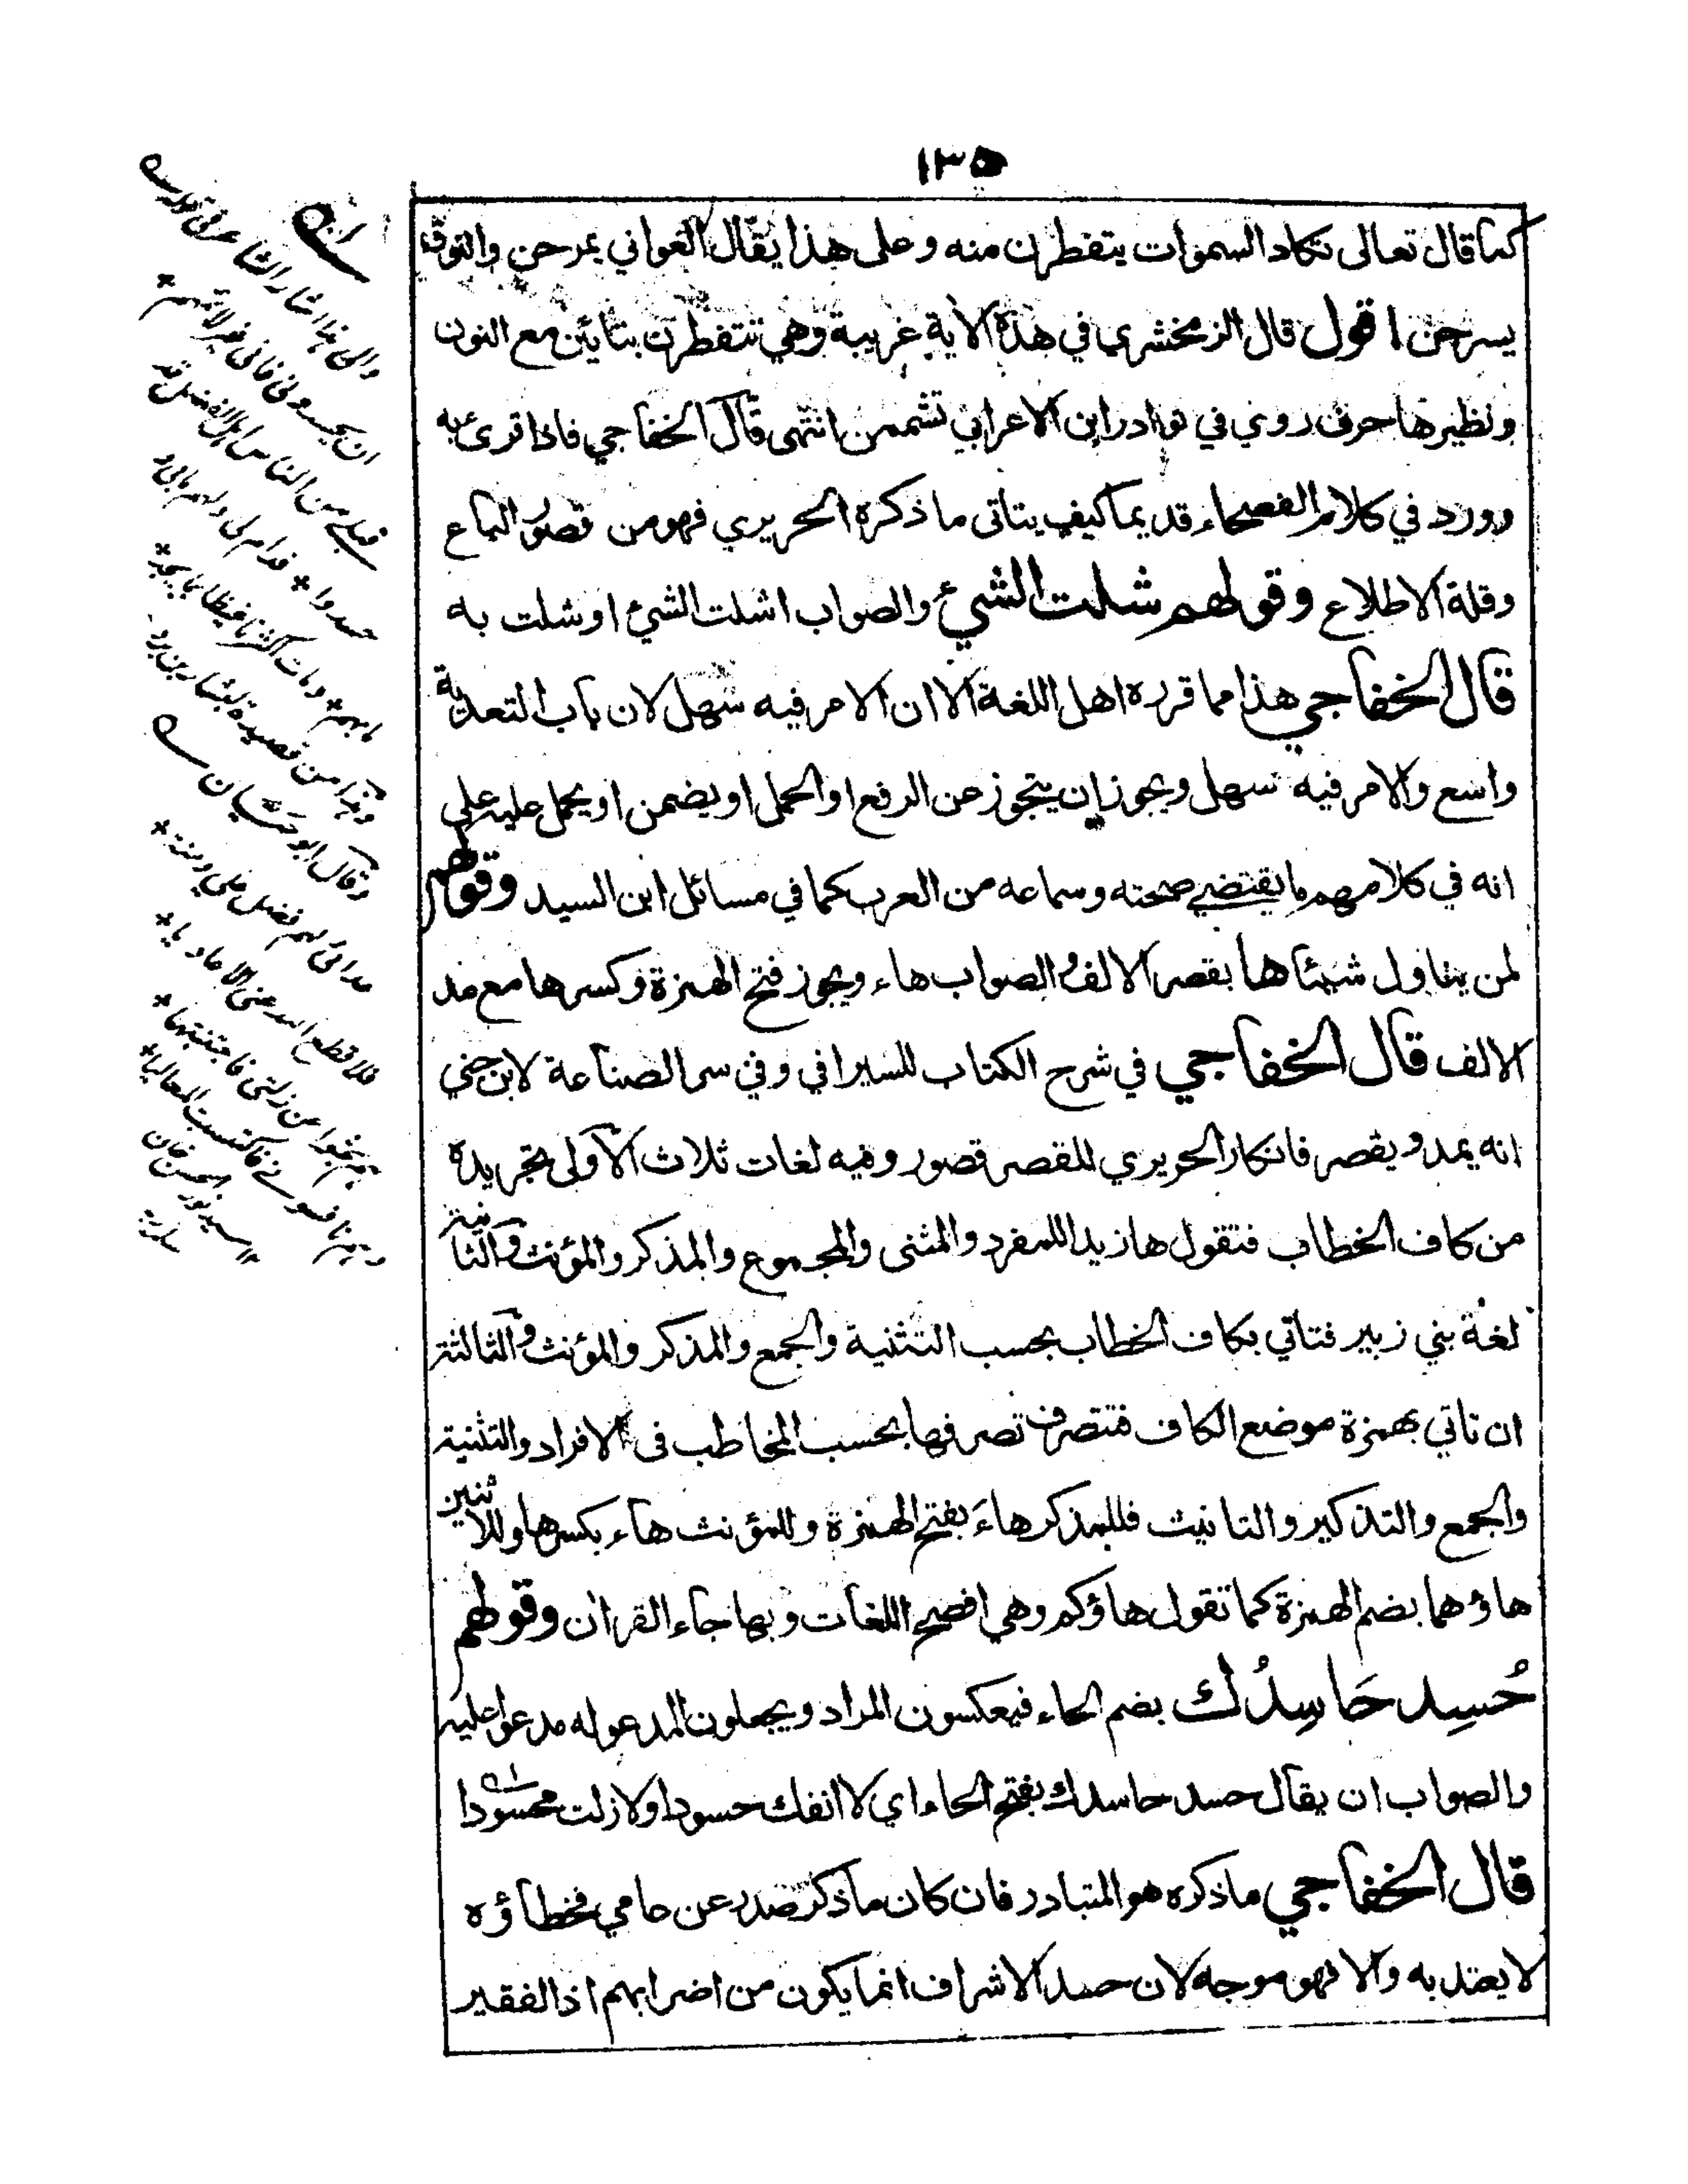 ١٣٥
كما قال تعالى تكاد السموات يتفطرن منه وعلى هذا يقال الغواني يمرحن والنوق
يسرحن اقول قال الزمخشري في هذه الاية غريبة وهي تتفطرن بتائين مع النون
ونظيرها حرف روي في نوادر ابن الاعرابي تشممن انتهى قال الخفاجي فاذا قرئ به
وورد في كلام الفصحاء قديما كيف يتاتى ما ذكره الحريري فهو من قصور الباع
وقلة الاطلاع وقولهم شلت الشيئ والصواب اشلت الشيئ اوشلت به
قال الخفاجي هذا مما قرره اهل اللغة الا ان الامر فيه سهل لان باب التعدية
واسع والامر فيه سهل ويجوز ان يتجوز عن الرفع اوالحمل اويضمن اويحمل عليه على
انه في كلامهم ما يقتضي صحته وسماعه من العرب كما في مسائل ابن السيد وقولهم
لمن يناول شيئا ها بقصر الالف والصواب هاء ويجوز فتح الهمزة وكسرها مع مد
الالف قال الخفاجي في شرح الكتاب للسيرافي وفي سر الصناعة لابن جني
انه يمد ويقصر فانكار الحريري للقصر قصور وفيه لغات ثلاث الاولى تجريده
من كاف الخطاب فتقول ها زيدا للمفرد والمثنى والمجموع والمذكر والمؤنث والثانية
لغة بني زبير فتاتي بكاف الخطاب بحسب التثنية والجمع والمذكر والمؤنث والثالثة
ان تاتي بهمزة موضع الكاف فتتصرف تصرفها بحسب المخاطب فى الافراد والتثنية
والجمع والتذكير والتانيث فللمذكر هاءَ بفتح الهمزة وللمؤنث هاء بكسرها وللاثنين
هاؤهما بضم الهمزة كما تقول هاؤكم وهي افصح اللغات وبها جاء القران وقولهم
حُسِد حَاسِدُك بضم الحاء فيعكسون المراد ويجعلون المدعو له مدعوا عليه
والصواب ان يقال حسد حاسدك بفتح الحاء اي لا انفك حسودا ولا زلت محسودا
قال الخفاجي ما ذكره هو المتبادر فان كان ما ذكر صدر عن حامي فخطاؤه
لا يعتد به والا فهو موجه لان حسد الاشراف انما يكون من اضرابهم اذ الفقير
والى هذا اشار الشاعر في قوله
ان يحسدوني فاني غير لائمهم *
قبلي من الناس اهل الفضل قد
حسدوا * فدام لي ولهم مابي و
ما بهم * ومات اكثرنا غيظا بما يجد *
وهذا من قصيدة لبشار بن برد
وقال ابو حيان
عداتي لهم فضل علي ومنة *
فلا قطع الله عني الاعاديا *
هم بحثوا عن زلتي فاجتنبتها *
وهم نافسوني فاكتسبت المعاليا *
السيد نور الحسن خان